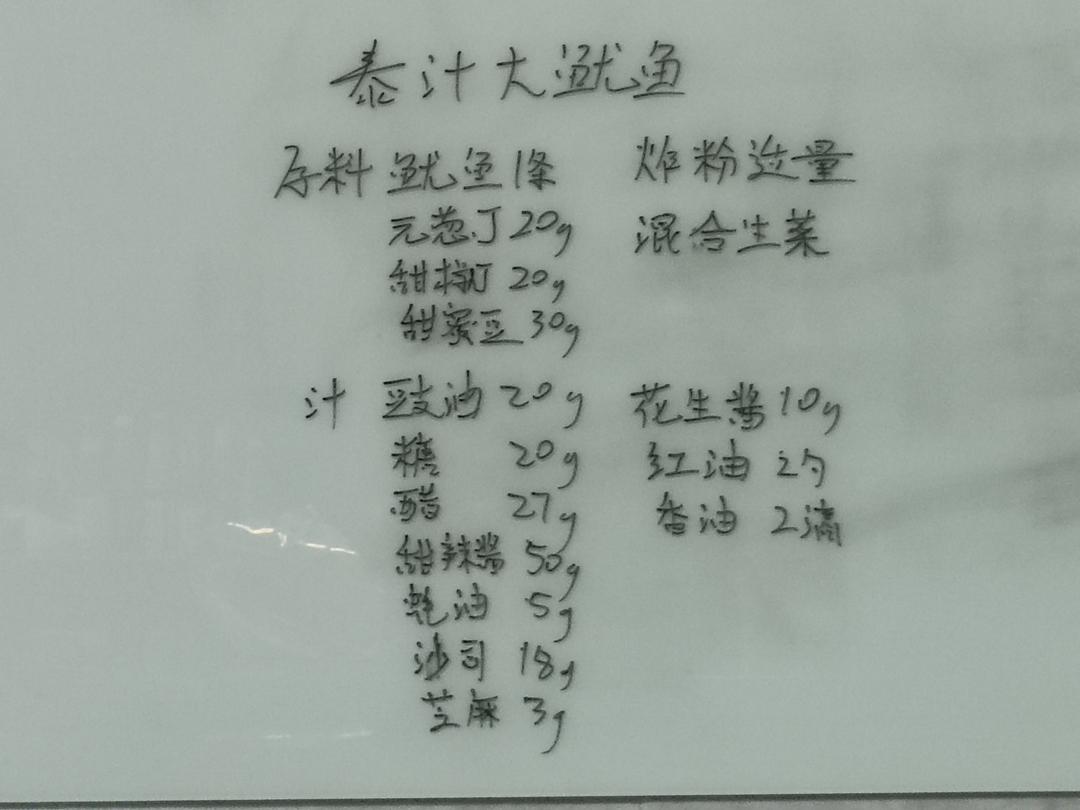 泰汁大鱿鱼
原料 鱿鱼1条 炸粉适量
元葱丁20g 混合生菜
甜椒丁 20g
甜蜜豆 30g
汁 豉油 20g 花生酱 10g
糖 20g 红油 2勺
醋 27g 香油 2滴
甜辣酱 50g
蚝油 5g
沙司 18g
芝麻 3g